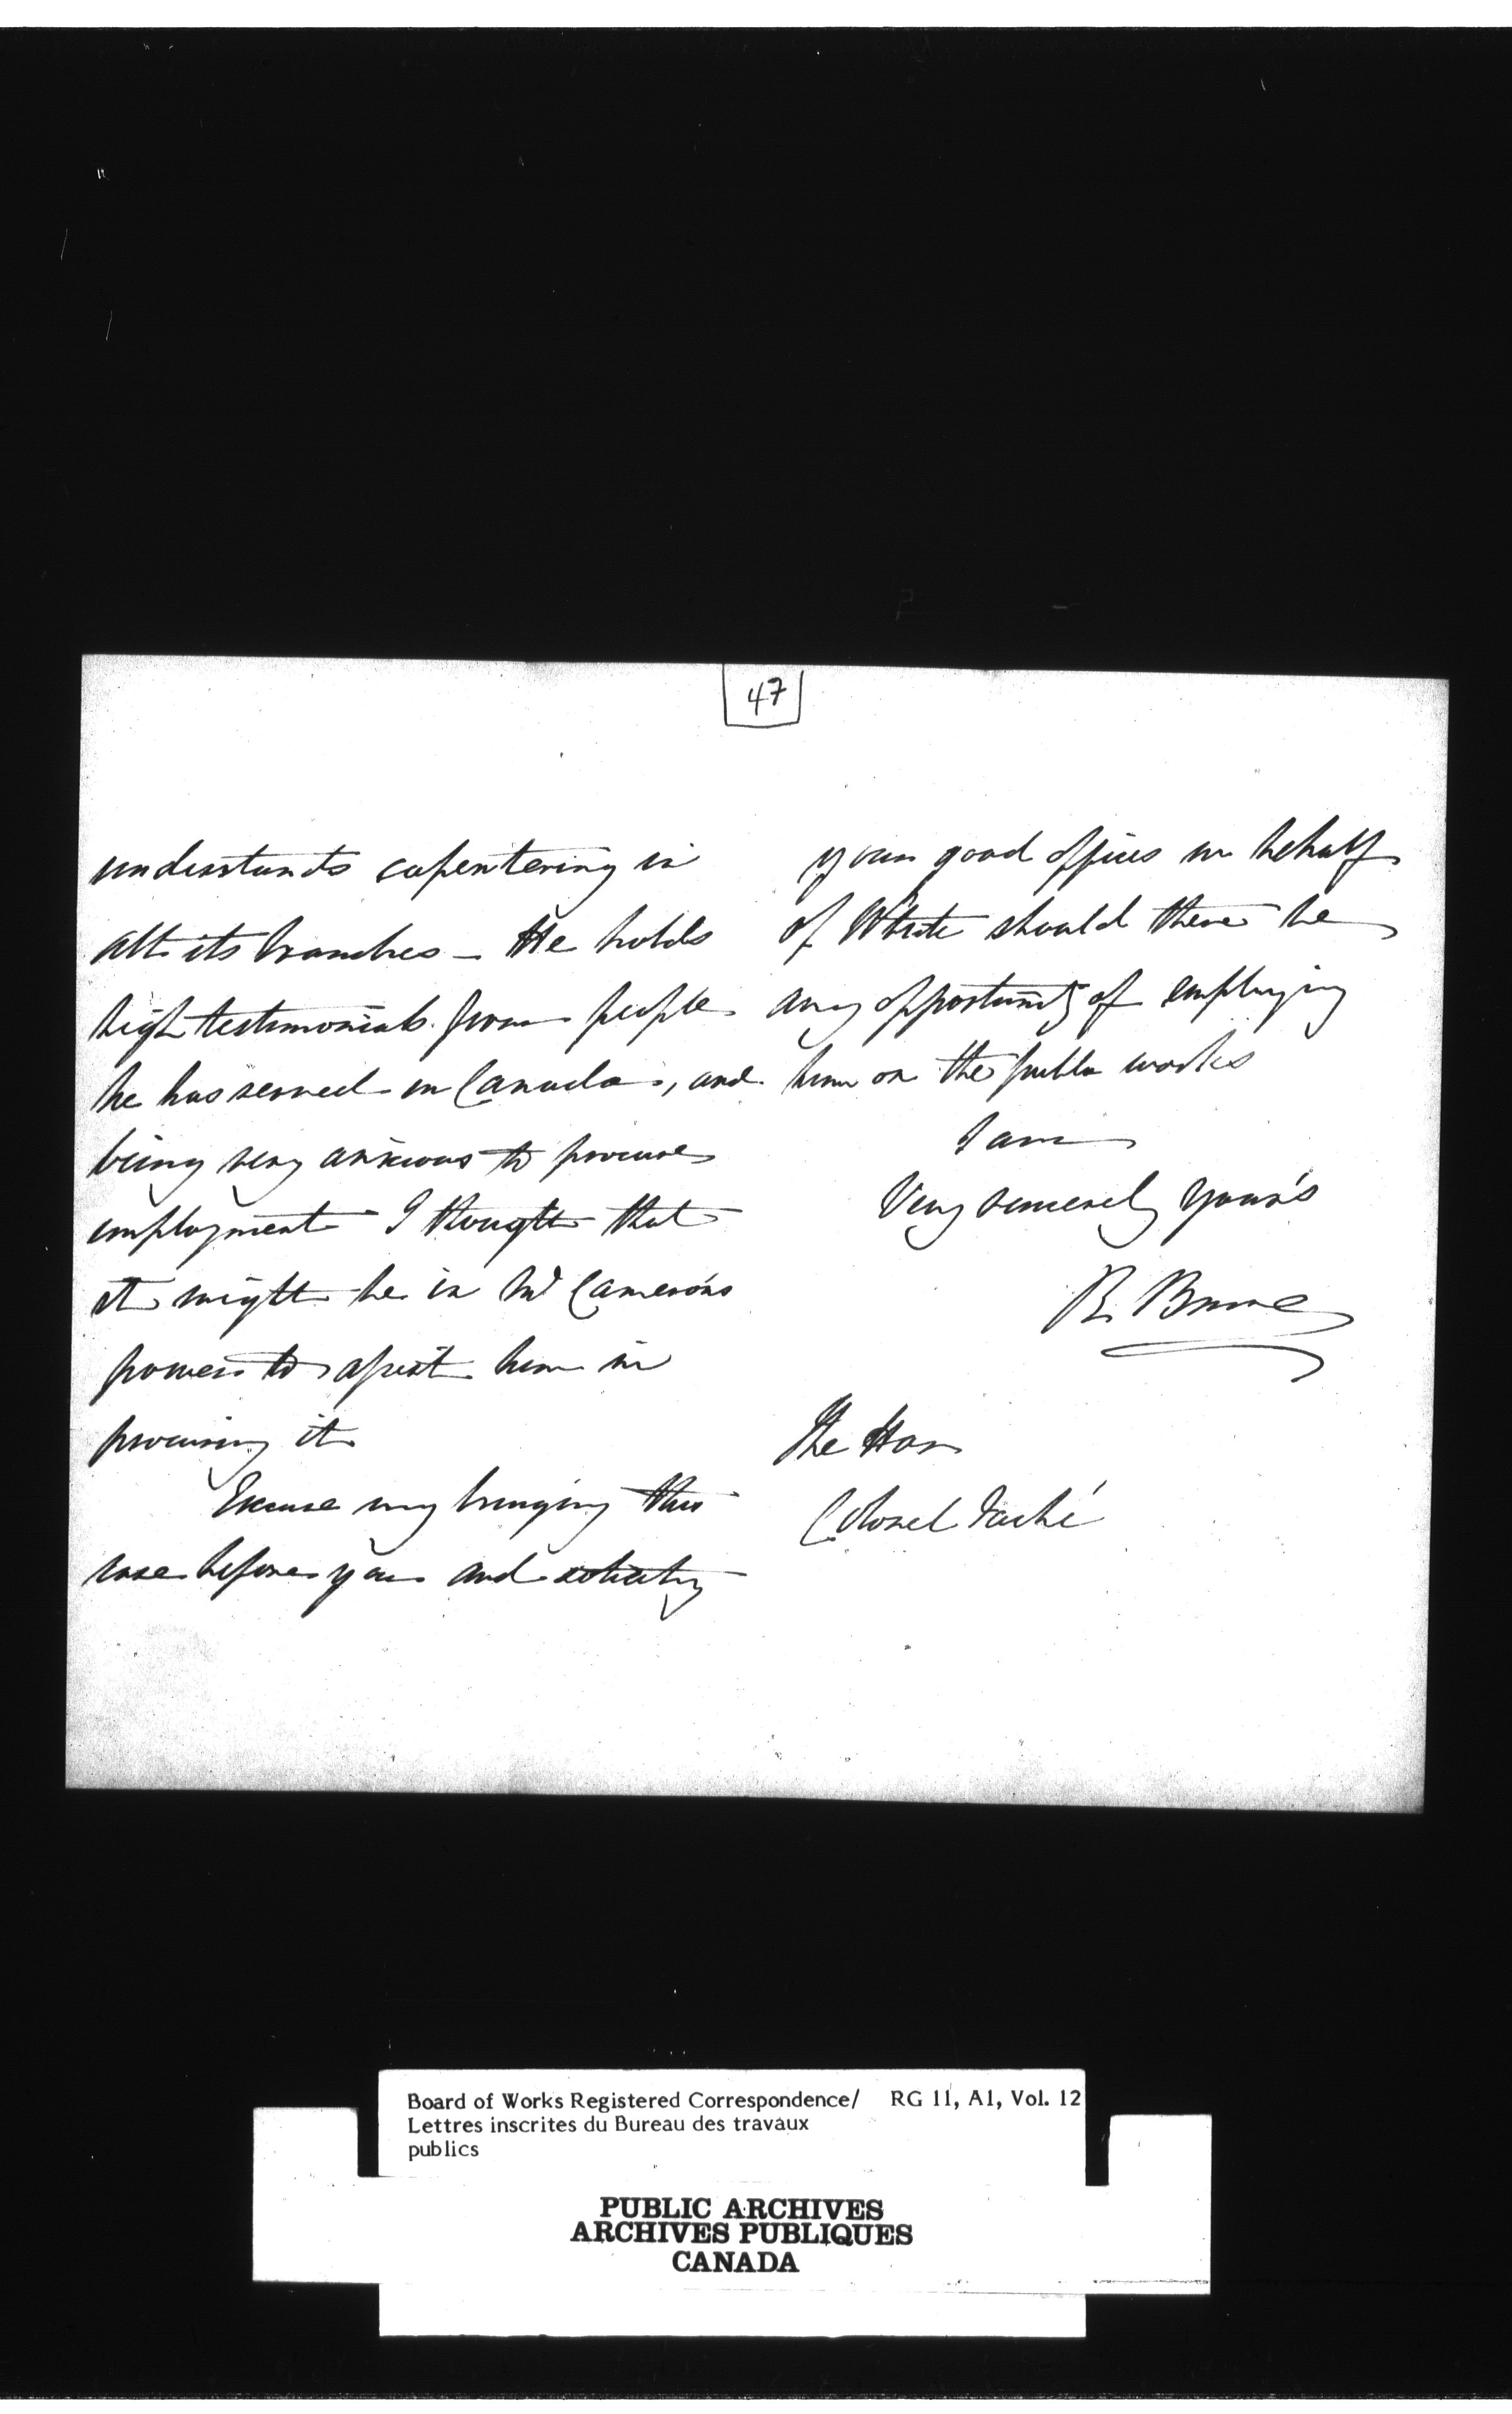 47
understands capentering in
all its branches - He holds
high testimonials from people
he has served in Canada, and
being very anxious to procure
employment I thought that
it might be in Mr Cameron's
power to assist him in
procuring it
Excuse my bringing this
case before you and soliciting
your good offices in behalf
of White should there be
any opportunity of employing
him on the public works
I am
Very sincerely Your's
R. Bruce
The Hon
Colonel Taché
Board of Works Registered Correspondence/ RG 11, A1, Vol. 12
Lettres inscrites du Bureau des travaux
publics
PUBLIC ARCHIVES
ARCHIVES PUBLIQUES
CANADA